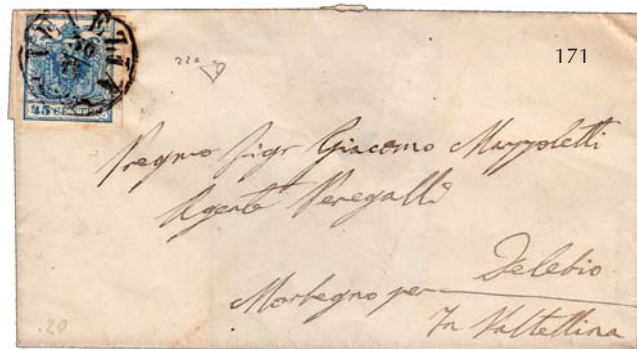 VENEZIA
45 CENTES.
171
Pregmo Sigr Giacomo Mazzoletti
Agente Peregalli
Delebio
Morbegno per
In Valtellina
.20